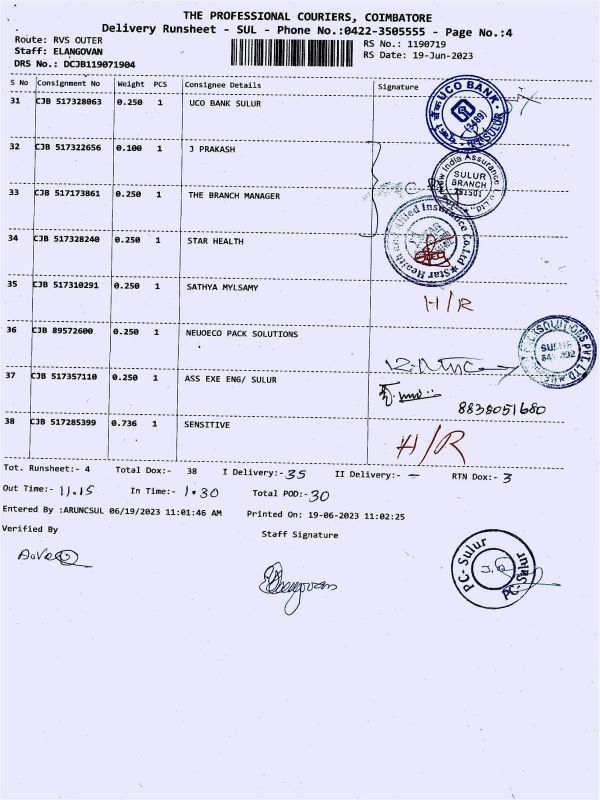 THE PROFESSIONAL COURIERS, COIMBATORE
Delivery Runsheet - SUL - Phone No.:0422-3505555 - Page No.:4
Route: RVS OUTER
RS No.: 1190719
Staff: ELANGOVAN
RS Date: 19-Jun-2023
DRS No.: DCJB119071904
S No Consignment No Weight PCS Consignee Details Signature
31 CJB 517328063 0.250 1 UCO BANK SULUR
UCO BANK
(3489)
SULUR
32 CJB 517322656 0.100 1 J PRAKASH
India Assurance
SULUR
BRANCH
33 CJB 517173861 0.250 1 THE BRANCH MANAGER
34 CJB 517328240 0.250 1 STAR HEALTH
Star Health and Allied Insurance Co.Ltd
35 CJB 517310291 0.250 1 SATHYA MYLSAMY
H/R
36 CJB 89572600 0.250 1 NEUOECO PACK SOLUTIONS
SOLUTIONS PVT. LTD.
37 CJB 517357110 0.250 1 ASS EXE ENG/ SULUR
8838051680
38 CJB 517285399 0.736 1 SENSITIVE
H/R
Tot. Runsheet:- 4 Total Dox:- 38 I Delivery:- 35 II Delivery:- - RTN Dox:- 3
Out Time:- 11.15 In Time:- 1.30 Total POD:- 30
Entered By :ARUNCSUL 06/19/2023 11:01:46 AM Printed On: 19-06-2023 11:02:25
Verified By
Staff Signature
Elangovan
PC-Sulur
PC-Sulur